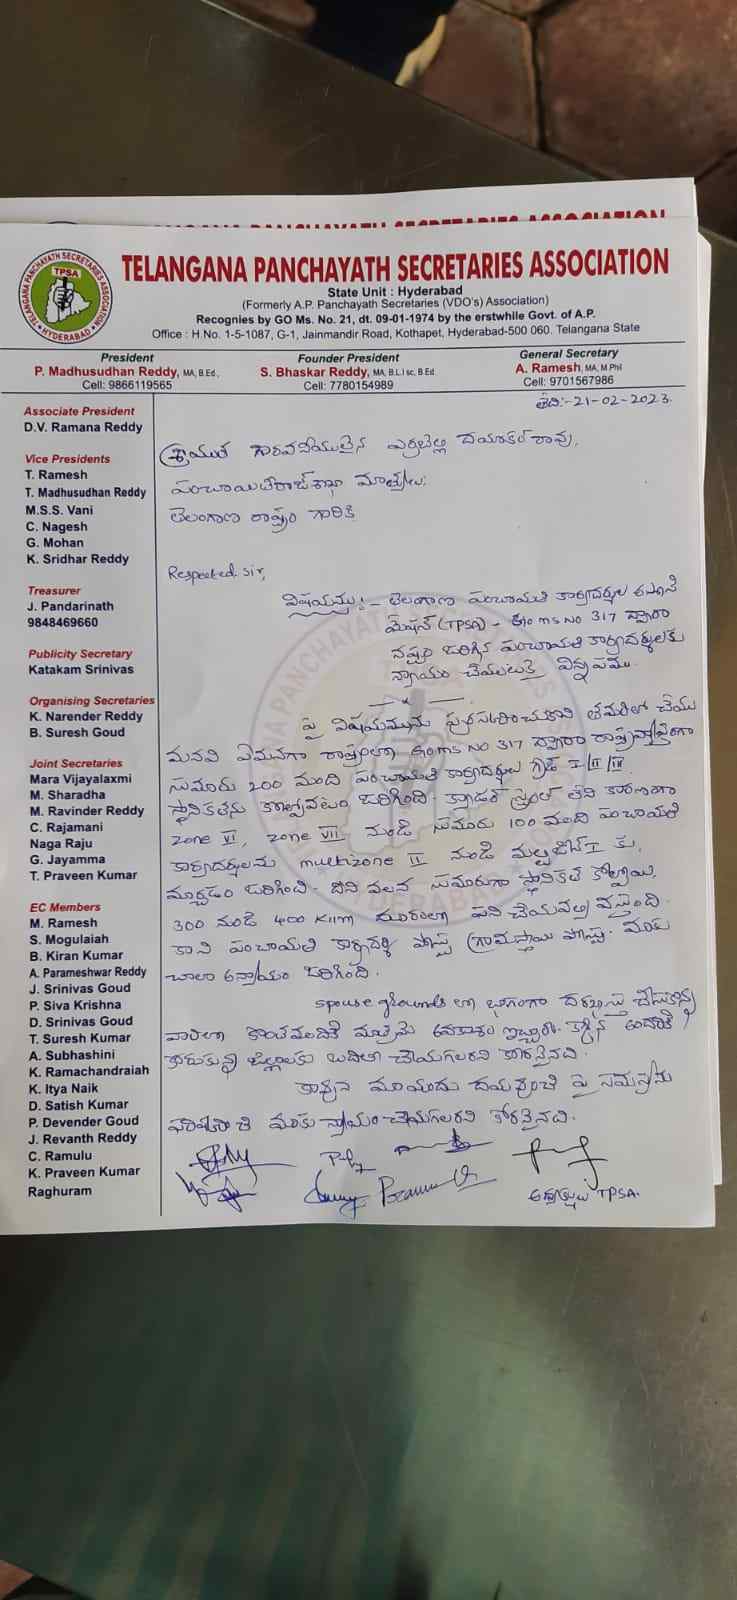 TELANGANA PANCHAYATH SECRETARIES ASSOCIATION
TELANGANA PANCHAYATH SECRETARIES ASSOCIATION
HYDERABAD
TPSA
TELANGANA PANCHAYATH SECRETARIES ASSOCIATION
State Unit : Hyderabad
(Formerly A.P. Panchayath Secretaries (VDO's) Association)
Recognies by GO Ms. No. 21, dt. 09-01-1974 by the erstwhile Govt. of A.P.
Office : H.No. 1-5-1087, G-1, Jainmandir Road, Kothapet, Hyderabad-500 060. Telangana State
President
P. Madhusudhan Reddy, MA, B.Ed.,
Cell: 9866119565
Founder President
S. Bhaskar Reddy, MA, B.L.I sc, B.Ed.
Cell: 7780154989
General Secretary
A. Ramesh, MA, M.Phil
Cell: 9701567986
Associate President
D.V. Ramana Reddy
Vice Presidents
T. Ramesh
T. Madhusudhan Reddy
M.S.S. Vani
C. Nagesh
G. Mohan
K. Sridhar Reddy
Treasurer
J. Pandarinath
9848469660
Publicity Secretary
Katakam Srinivas
Organising Secretaries
K. Narender Reddy
B. Suresh Goud
Joint Secretaries
Mara Vijayalaxmi
M. Sharadha
M. Ravinder Reddy
C. Rajamani
Naga Raju
G. Jayamma
T. Praveen Kumar
EC Members
M. Ramesh
S. Mogulaiah
B. Kiran Kumar
A. Parameshwar Reddy
J. Srinivas Goud
P. Siva Krishna
D. Srinivas Goud
T. Suresh Kumar
A. Subhashini
K. Ramachandraiah
K. Itya Naik
D. Satish Kumar
P. Devender Goud
J. Revanth Reddy
C. Ramulu
K. Praveen Kumar
Raghuram
తేది:-21-02-2023.
శ్రీయుత గౌరవనీయులైన ఎర్రబెల్లి దయాకర్ రావు,
పంచాయితీరాజ్ శాఖ
తెలంగాణ రాష్ట్రం గారికి
Respected. Sir,
విషయము:- తెలంగాణ పంచాయతి కార్యదర్శుల అసోసి
యేషన్ (TPSA) - Go ms No 317 ద్వారా
నష్టం జరిగిన పంచాయతి కార్యదర్శులకు
న్యాయం చేయుటకై విన్నపము.
పై విషయమును పురస్కరించుకొని తమరితో చేయు
మనవి ఏమనగా రాష్ట్రంలో Go ms No 317 ద్వారా రాష్ట్రవ్యాప్తంగా
సుమారు 200 మంది పంచాయతి కార్యదర్శుల గ్రేడ్ I/II/IV
స్థానికతను కోల్పోవటం జరిగింది. క్యాడర్ స్ట్రెంత్ లేని కారణంగా
zone VI, zone VII నుండి సుమారు 100 మంది పంచాయతి
కార్యదర్శులను multizone II నుండి I కు
మార్చడం జరిగింది. దీని వలన సుమారుగా స్థానికత కోల్పోయి,
300 నుండి 400 Kilm దూరంలో పని చేయవలసి వస్తుంది.
కాని పంచాయతి కార్యదర్శి పోస్టు గ్రామస్థాయి పోస్టు. మాకు
చాలా అన్యాయం జరిగింది.
spouse grounds లో భాగంగా దరఖాస్తు చేసుకొన్న
వారిలో కొంతమందికి మాత్రమే అవకాశం ఇచ్చారు. అందరికి
కోరుకున్న జిల్లాలకు బదిలీ చేయగలరని కోరనైనది.
కావున మాయందు దయవుంచి పై సమస్యను
పరిష్కరించి మాకు న్యాయం చేయగలరని కోరనైనది.
అధ్యక్షులు TPSA.